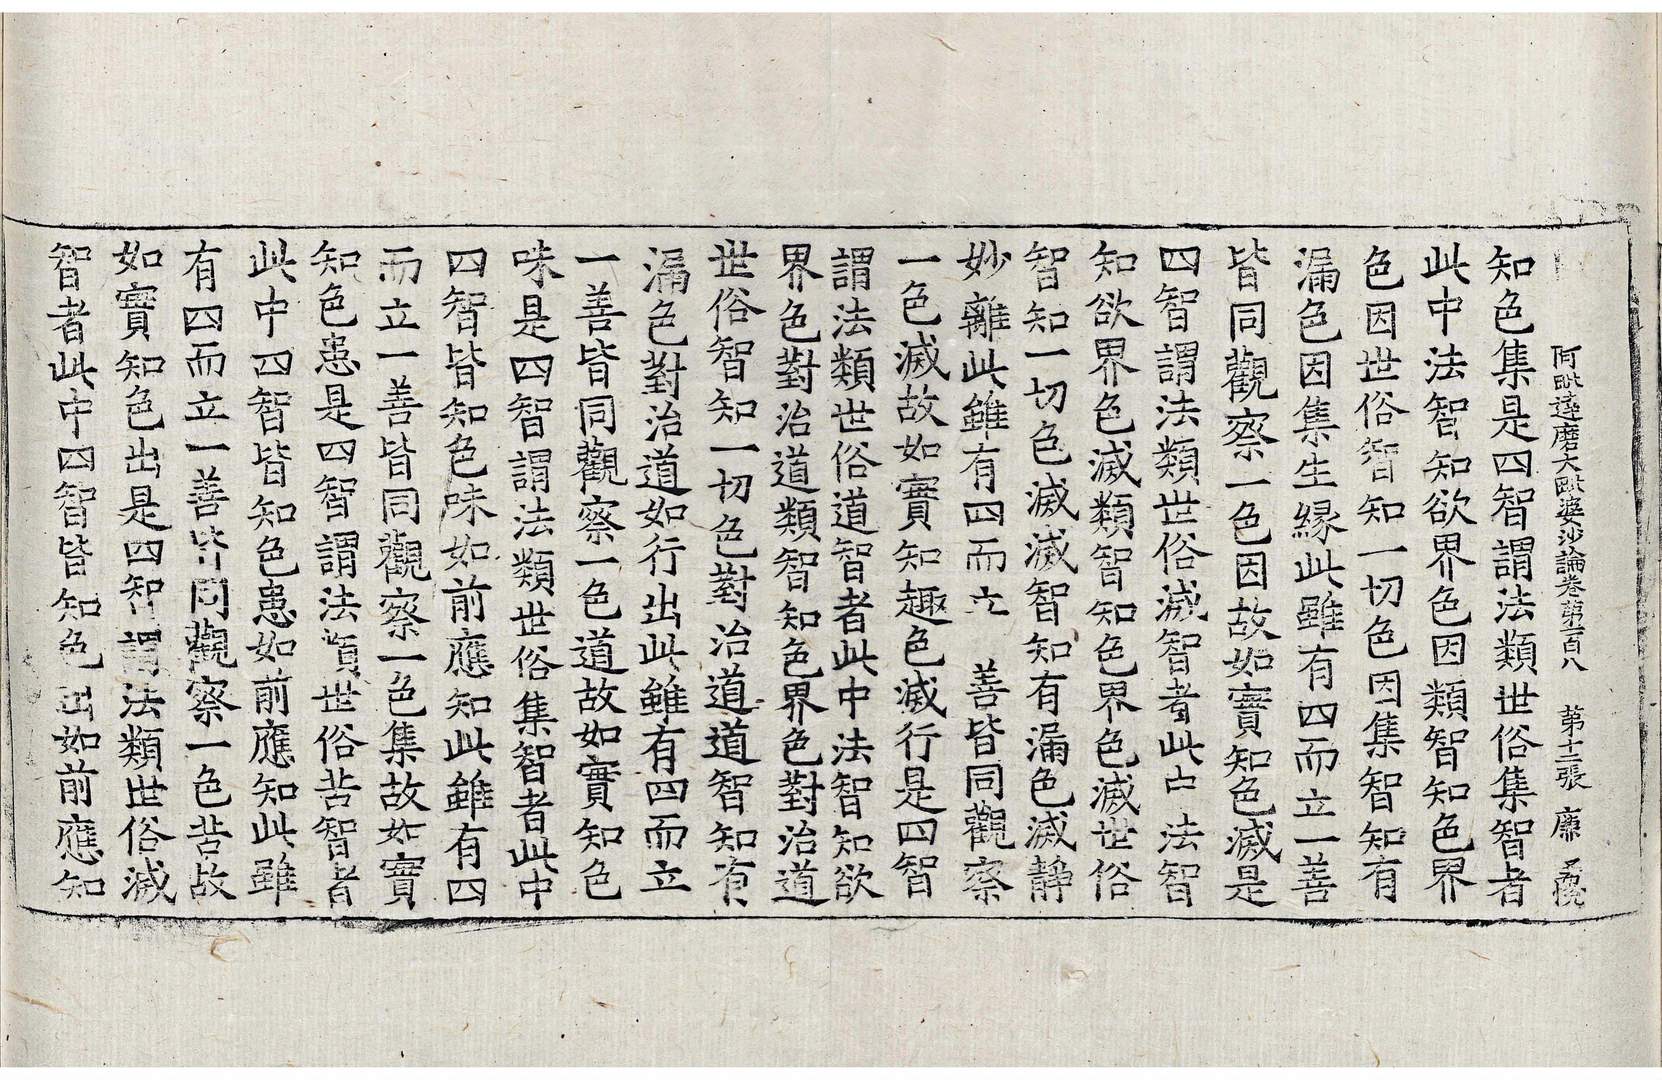 阿毗達磨大毗婆沙論卷第一百八　第十二張　廉
知色集是四智謂法類世俗集智者
此中法智知欲界色因類智知色界
色因世俗智知一切色因集智知有
漏色因集生緣此雖有四而立一善
皆同觀察一色因故如實知色滅是
四智謂法類世俗滅智者此中法智
知欲界色滅類智知色界色滅世俗
智知一切色滅滅智知有漏色滅靜
妙離此雖有四而立 善皆同觀察
一色滅故如實知趣色滅行是四智
謂法類世俗道智者此中法智知欲
界色對治道類智知色界色對治道
世俗智知一切色對治道道智知有
漏色對治道如行出此雖有四而立
一善皆同觀察一色道故如實知色
味是四智謂法類世俗集智者此中
四智皆知色味如前應知此雖有四
而立一善皆同觀察一色集故如實
知色患是四智謂法類世俗苦智者
此中四智皆知色患如前應知此雖
有四而立一善皆同觀察一色苦故
如實知色出是四智謂法類世俗滅
智者此中四智皆知色出如前應知